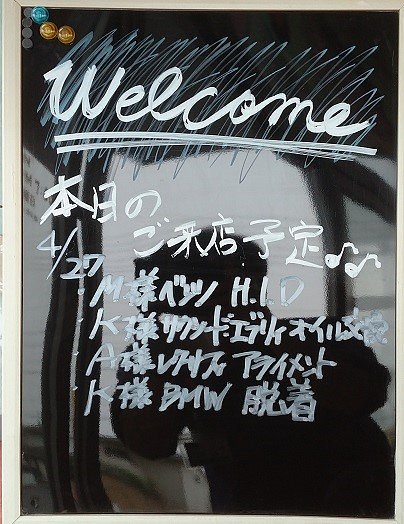 Welcome
本日の
4/27 ご来店予定♪♫
・M様 ベンツ H.I.D
・K様 サクシード・エブリィ オイル交換
・A様 レクサス アライメント
・K様 BMW 脱着